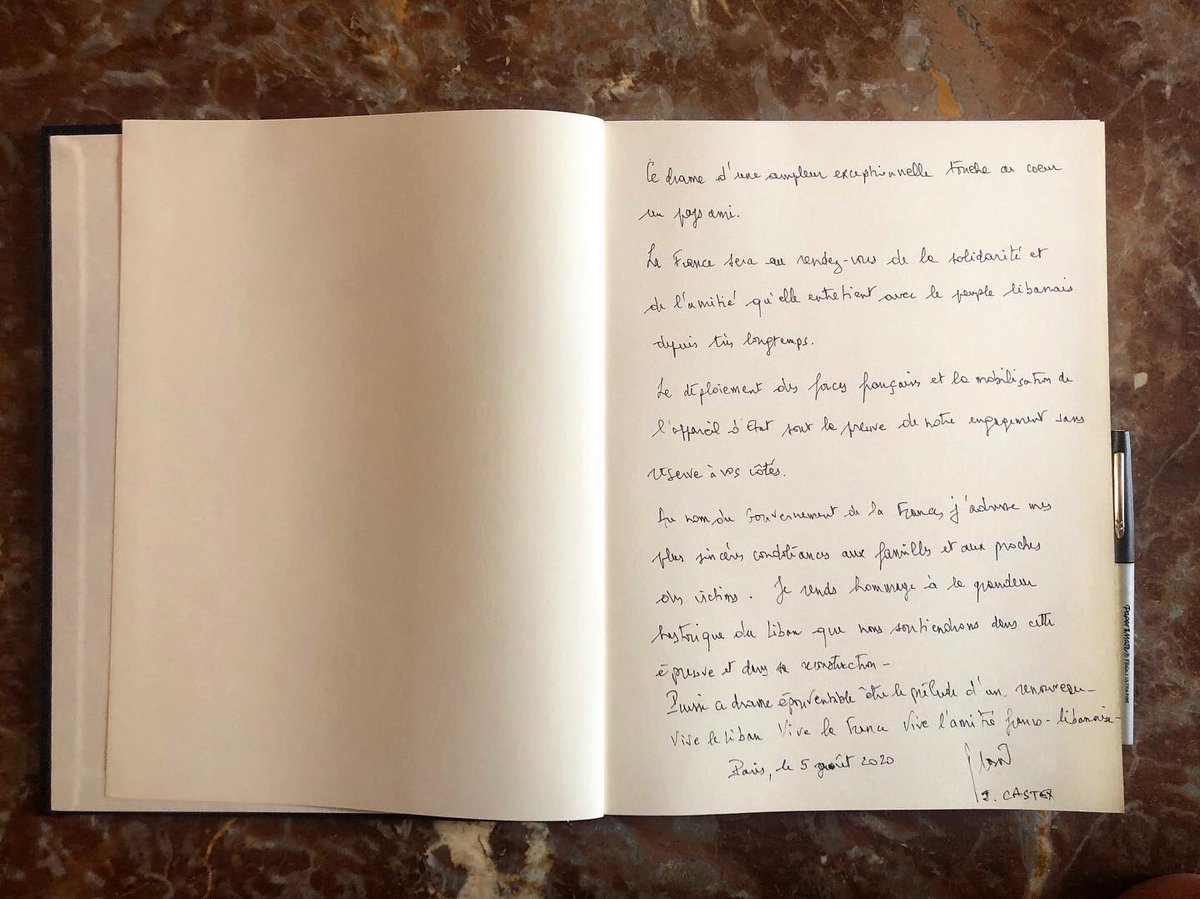 Ce drame d'une ampleur exceptionnelle touche au coeur
un pays ami.
La France sera au rendez-vous de la solidarité et
de l'amitié qu'elle entretient avec le peuple libanais
depuis très longtemps.
Le déploiement des forces françaises et la mobilisation de
l'appareil d'Etat sont la preuve de notre engagement sans
réserve à vos côtés.
Au nom du Gouvernement de la France, j'adresse mes
plus sincères condoléances aux familles et aux proches
des victimes. Je rends hommage à la grandeur
historique du Liban que nous soutiendrons dans cette
épreuve et dans sa reconstruction -
Puisse ce drame épouventable être le prélude d'un renouveau -
Vive le Liban Vive la France Vive l'amitié franco-libanaise -
Paris, le 5 août 2020
J. CASTEX